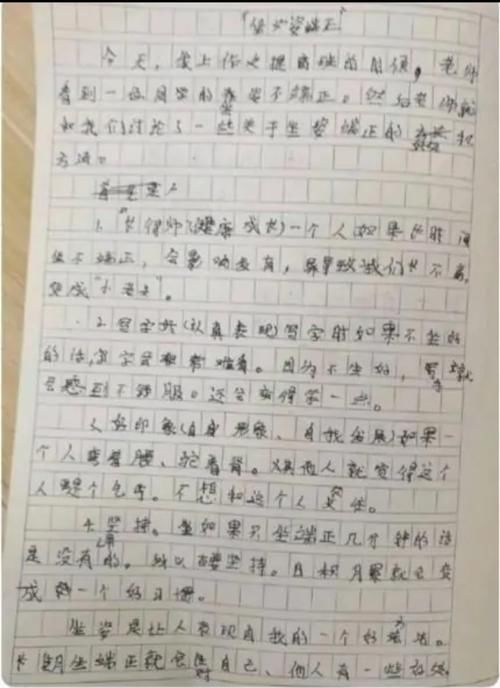 "坐姿端正"
今天,我上作文提高班的时候,老师
看到一位同学的坐姿不端正。然后老师就
和我们讨论了一些关于坐姿端正的 和
方法。
1."长得帅"(健康成长)一个人如果长时间
坐不端正,会影响发育,导致我们长不高,
变成"小老头"。
2.写字好(认真表现)写字时如果不坐好
的话,写字会非常难看。因为不坐好,写就
会感到不舒服。还会变得笨一点。
3.好印象(自身形象、自我发展)如果一
个人弯着腰、驼着背。其他人就觉得这个
人是个乞丐。不想和这个人交往。
4.坚持。坐如果只坐端正几分钟的话
是没有用的。所以要坚持。日积月累就会变
成 一个好习惯。
坐姿是让人表现自我的一个好方法。
长期坐端正就会 自己、他人有一些